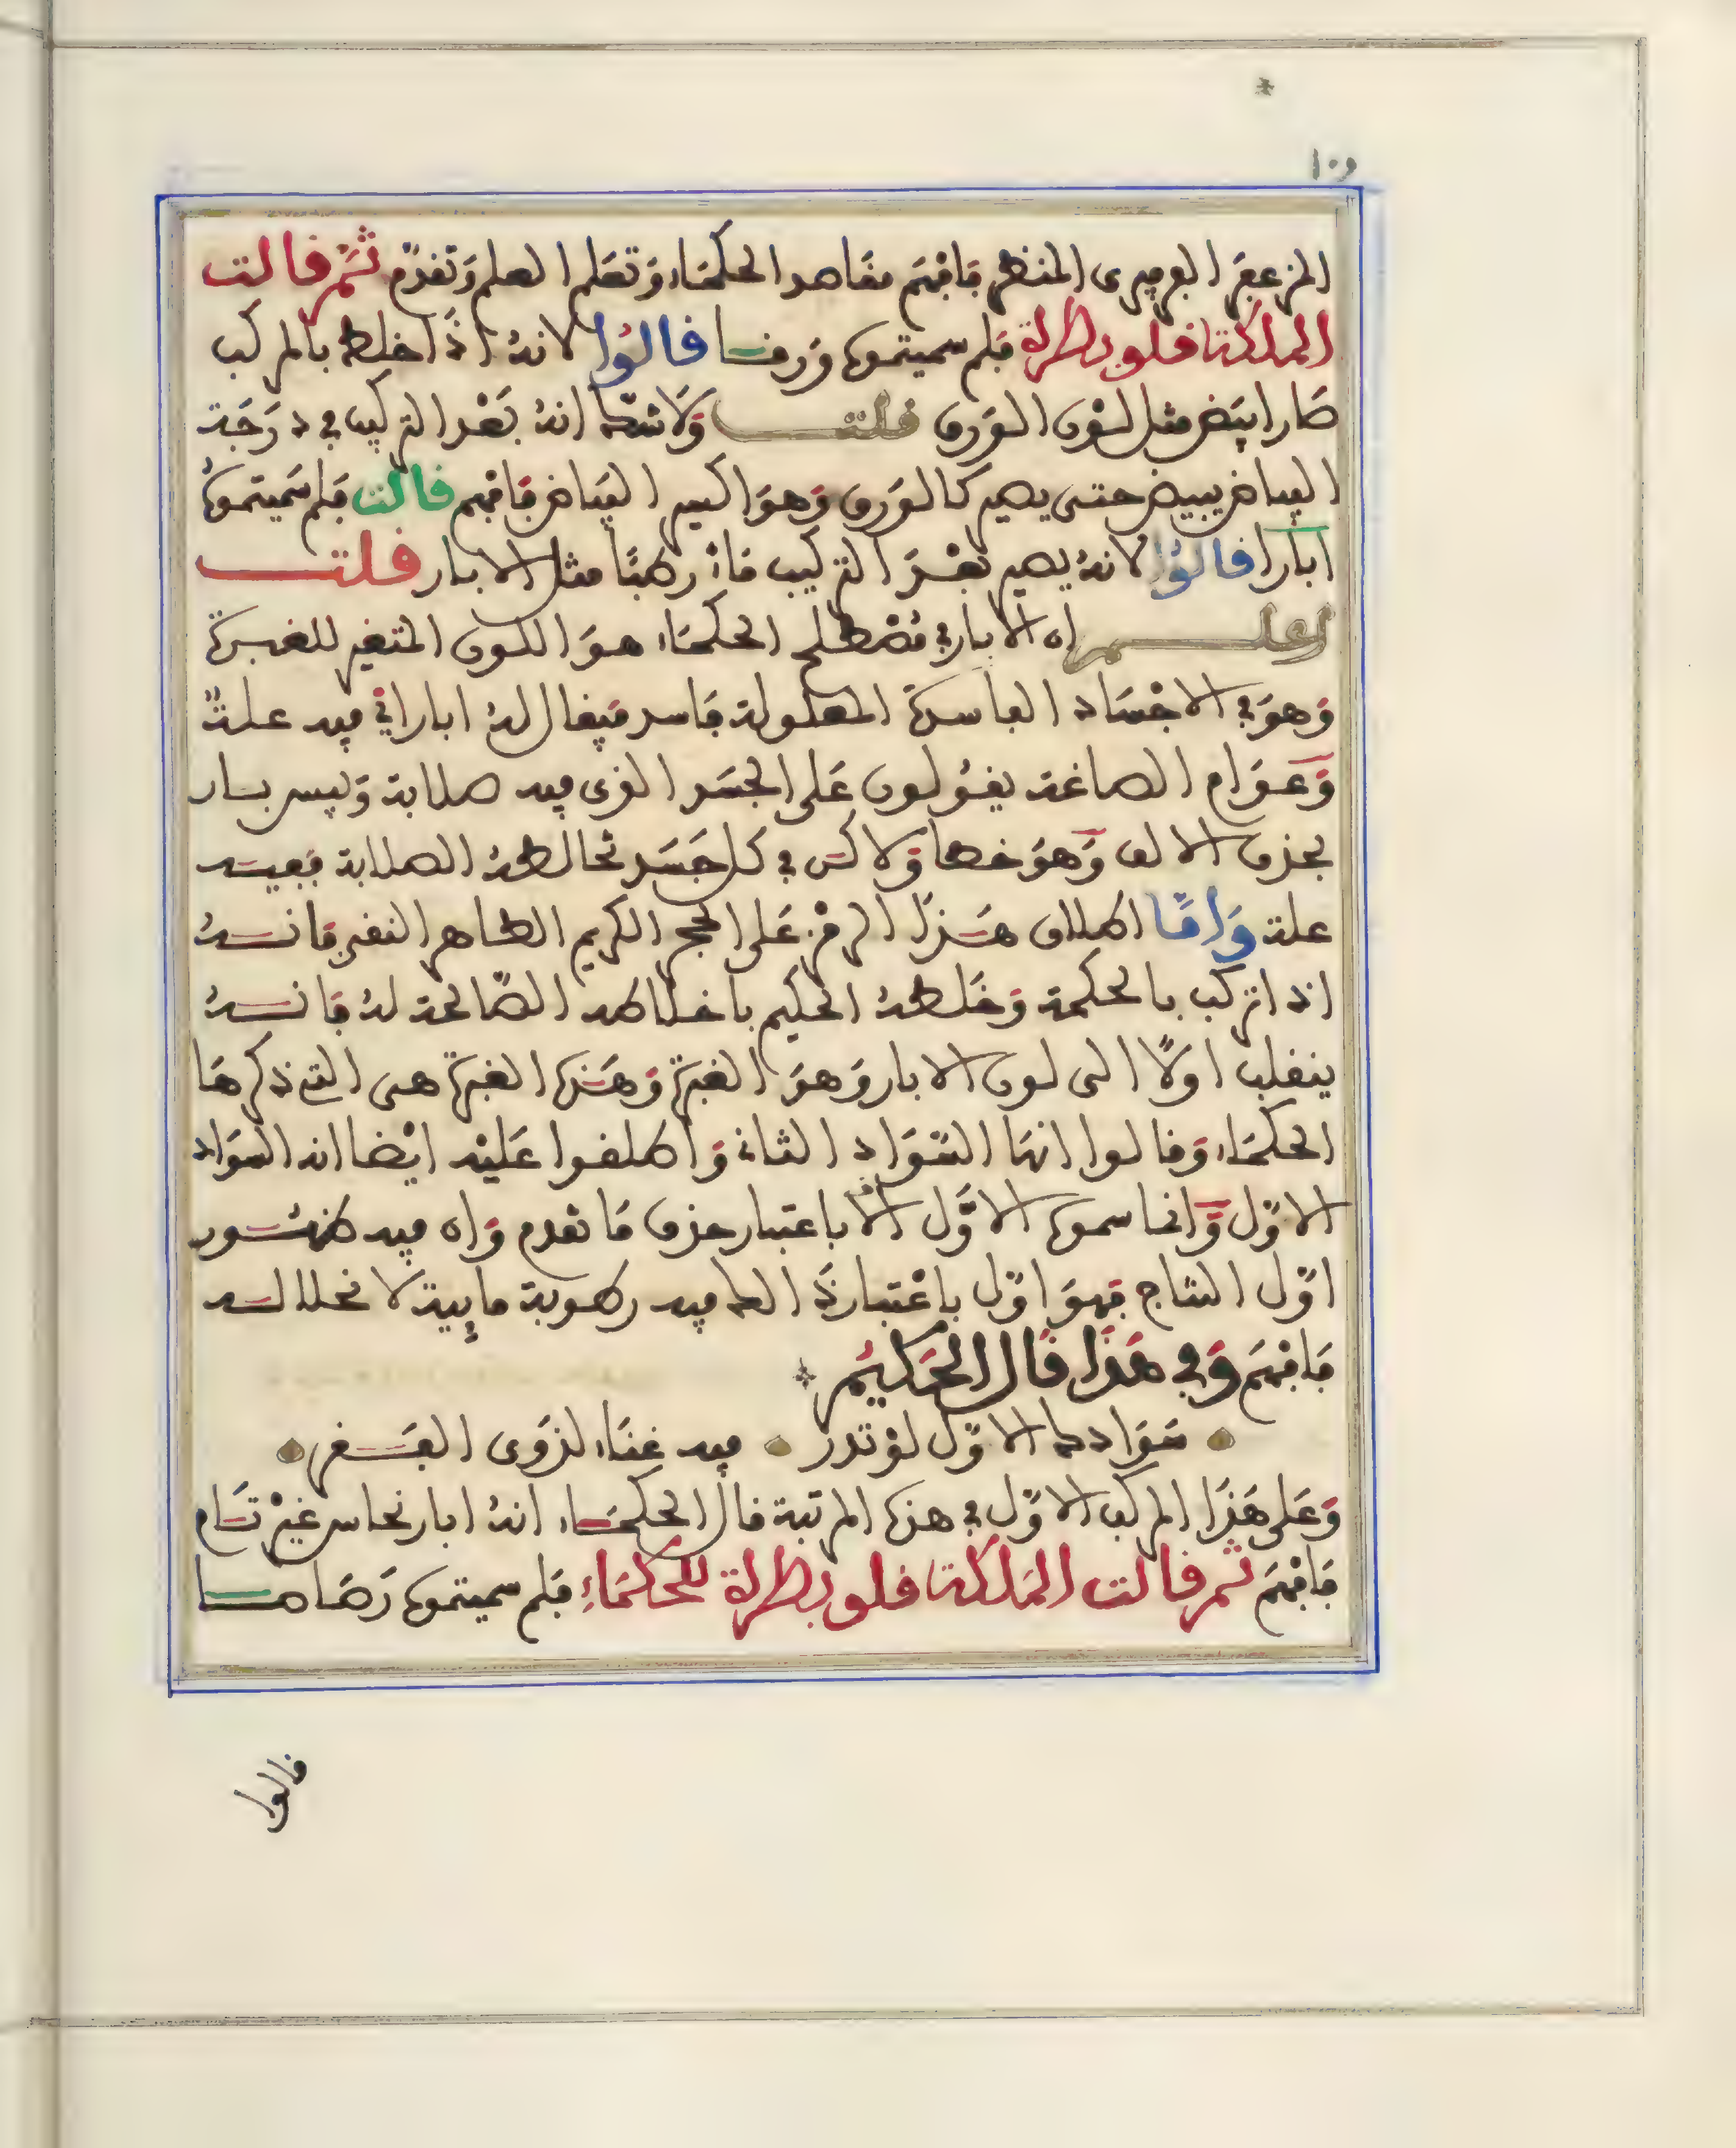 ١٠٩
المزعفر الفرفيرى المنظر فافهم مقاصد الحكماء وتعلم العلم وتقدم ثم قالت
الملكة قلوبطرة فلم سميتموه ورقا قالوا لانه اذا خلط بالمركب
صار ابيض مثل لون الورق قلت ولا شك انه بعد التركيب في درجة
البياض يبيض حتى يصير كالورق وهو اكسير البياض فافهم قالت فلم سميتموه
ابارا قالوا لانه يصير بعد التركيب ماء رطبا مثل الابار قلت
اعلم ان الابار في مصطلح الحكماء هو اللون المتغير للغبرة
وهو في الاجساد الفاسدة المعلولة فاسد فيقال له ابار اي فيه علة
وعوام الصاغة يقولون على الجسد الذى فيه صلابة ويبس بار
بحذف الالف وهو خطا ولاكن في كل جسد تخالطه الصلابة ففيه
علة واما اطلاق هذا الرمز على الحجر الكريم الطاهر النقي فانه
اذا تركب بالحكمة وخلطه الحكيم باخلاطه الصالحة له فانه
ينقلب اولا الى لون الابار وهو الغبرة وهذه الغبرة هى التي ذكرها
الحكماء وقالوا انها السواد الثاني واطلقوا عليه ايضا انه السواد
الاول وانما سموه الاول الا باعتبار حذف ما تقدم وان فيه ظهور
اول النتاج فهو اول باعتبار ذالك فيه رطوبة مايية لانحلاله
فافهم وفي هذا قال الحكيم
سواده الاول لو تدر فيه غناء لذوى الفقر
وعلى هذا المركب الاول في هذه المرتبة قال الحكماء انه ابار نحاس غير تام
فافهم ثم قالت الملكة قلوبطرة للحكماء فلم سميتموه رصاصا
قالوا